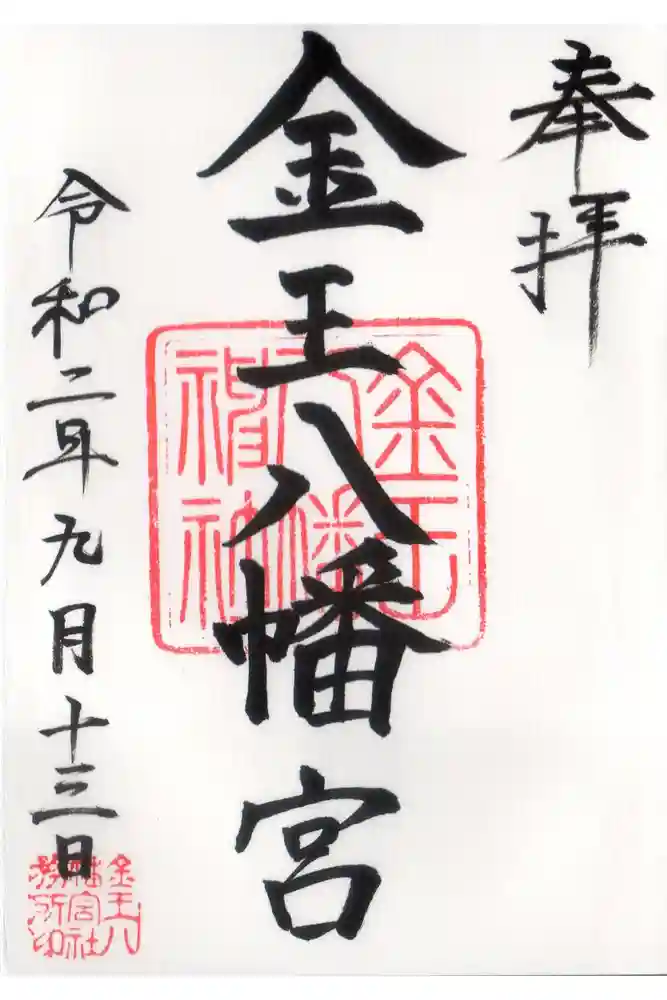 奉拝
金王八幡宮
令和二年九月十三日
金王
八幡
金王八
幡宮社
務所印